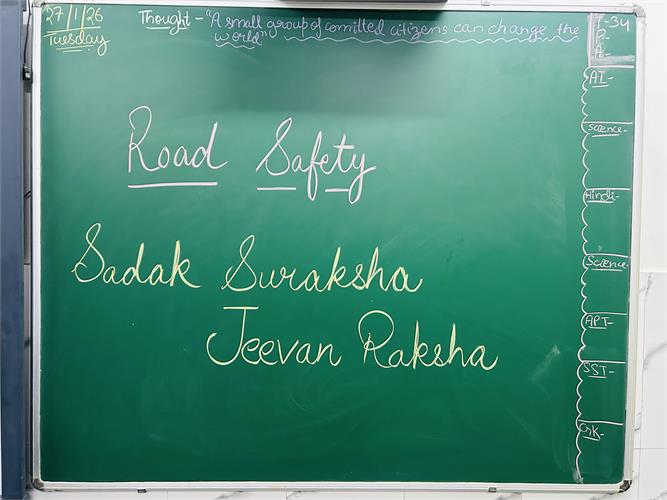 27/1/26
Tuesday
Thought - "A small group of comitted citizens can change the
world"
T-34
P-
A-
AI-
Science-
Hindi-
Science-
APT-
SST-
GK-
Road Safety
Sadak Suraksha
Jeevan Raksha